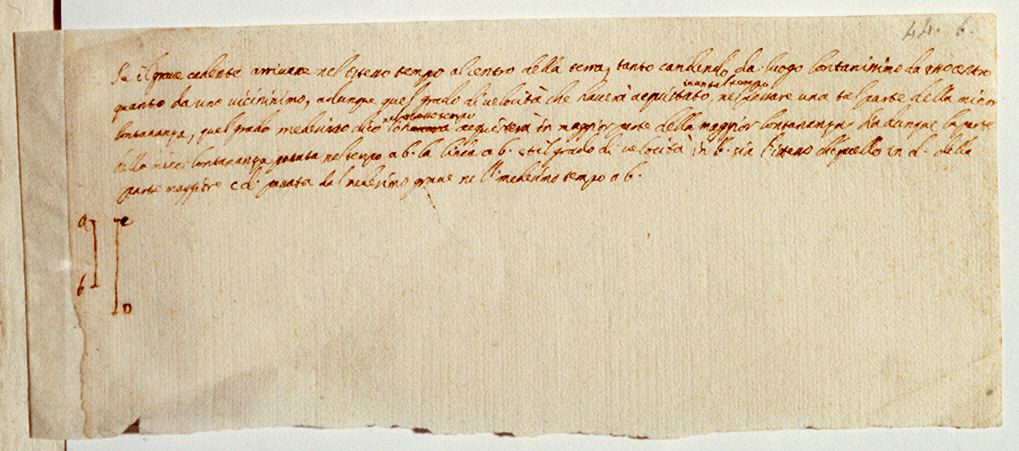 44. 6.
Se il grave cadente arrivare nel istesso tempo al centro della terra, tanto cascando da luogo lontanissimo da esso centro
quanto da uno vicinissimo, adunque quel grado di velocità che haverà acquistato, in un tal tempo nel passare una tal parte della minor
lontananza, quel grado medesimo dico nel istesso tempo acquisterà in maggior parte della maggior lontananza: sia dunque la parte
della minor lontananza passata nel tempo a b. la linea a b. et il grado di velocità in b. sia l'istesso che quello in d. della
parte maggiore c d. passata dal medesimo grave nell' medesimo tempo a b.
a c
b
D